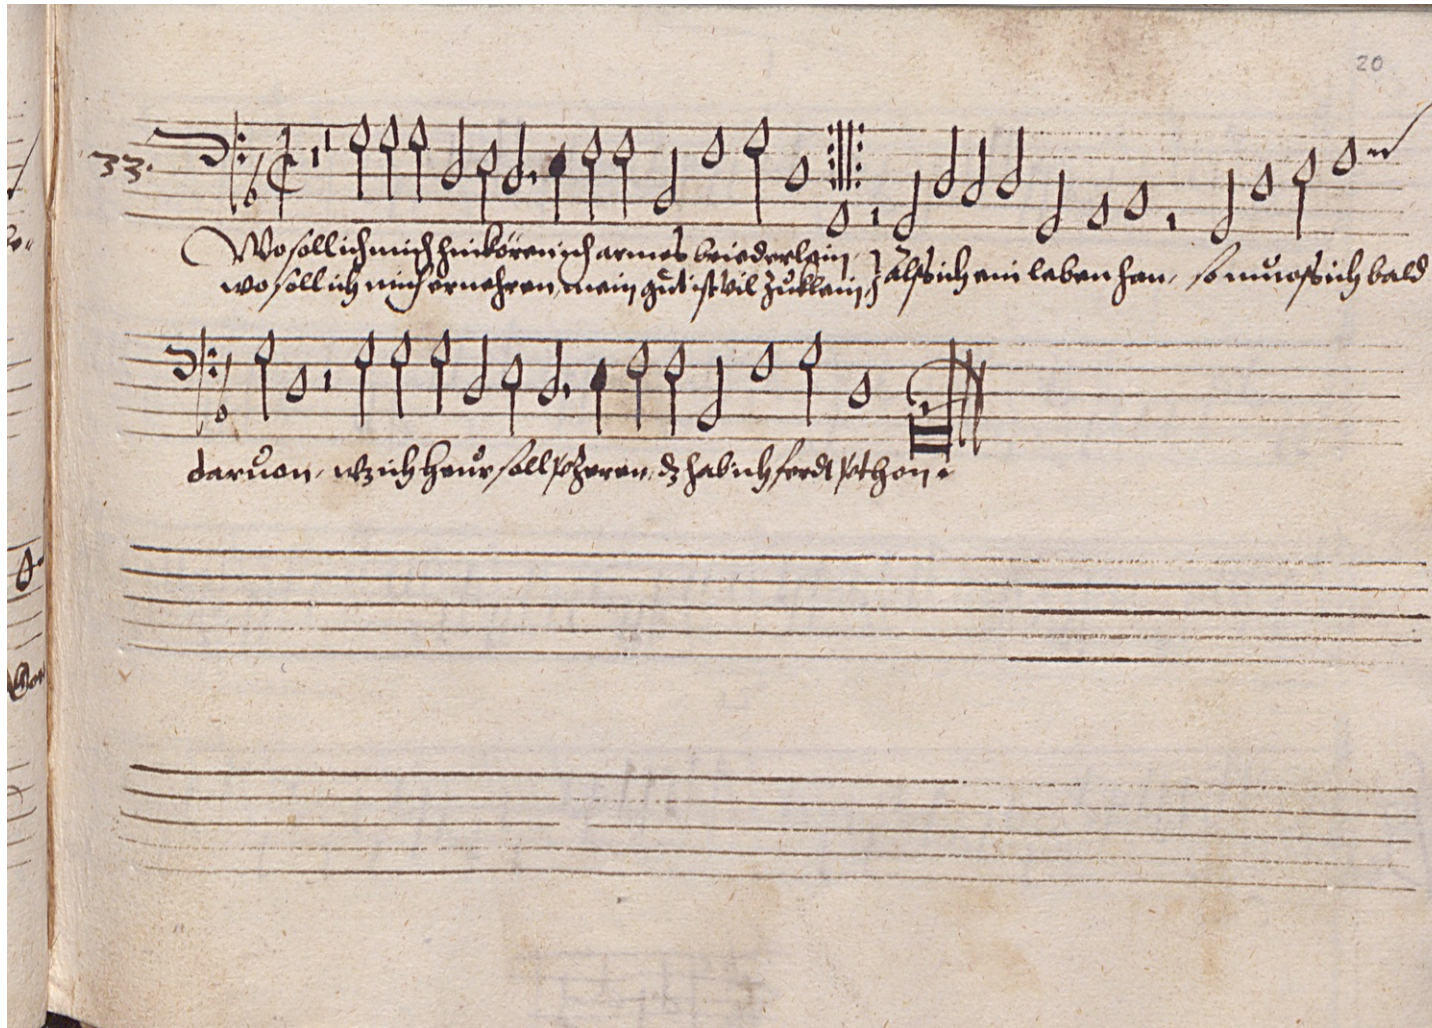 20
33.
Wo soll ich mich hinkören ich armes briederlein,
wo soll ich mich ernehren, mein gůt ist vil zůklein,
Alß ich ein leben han, so můoß ich bald
daruon, wz ich heur soll verzeren, dz hab ich ferdt verthon.